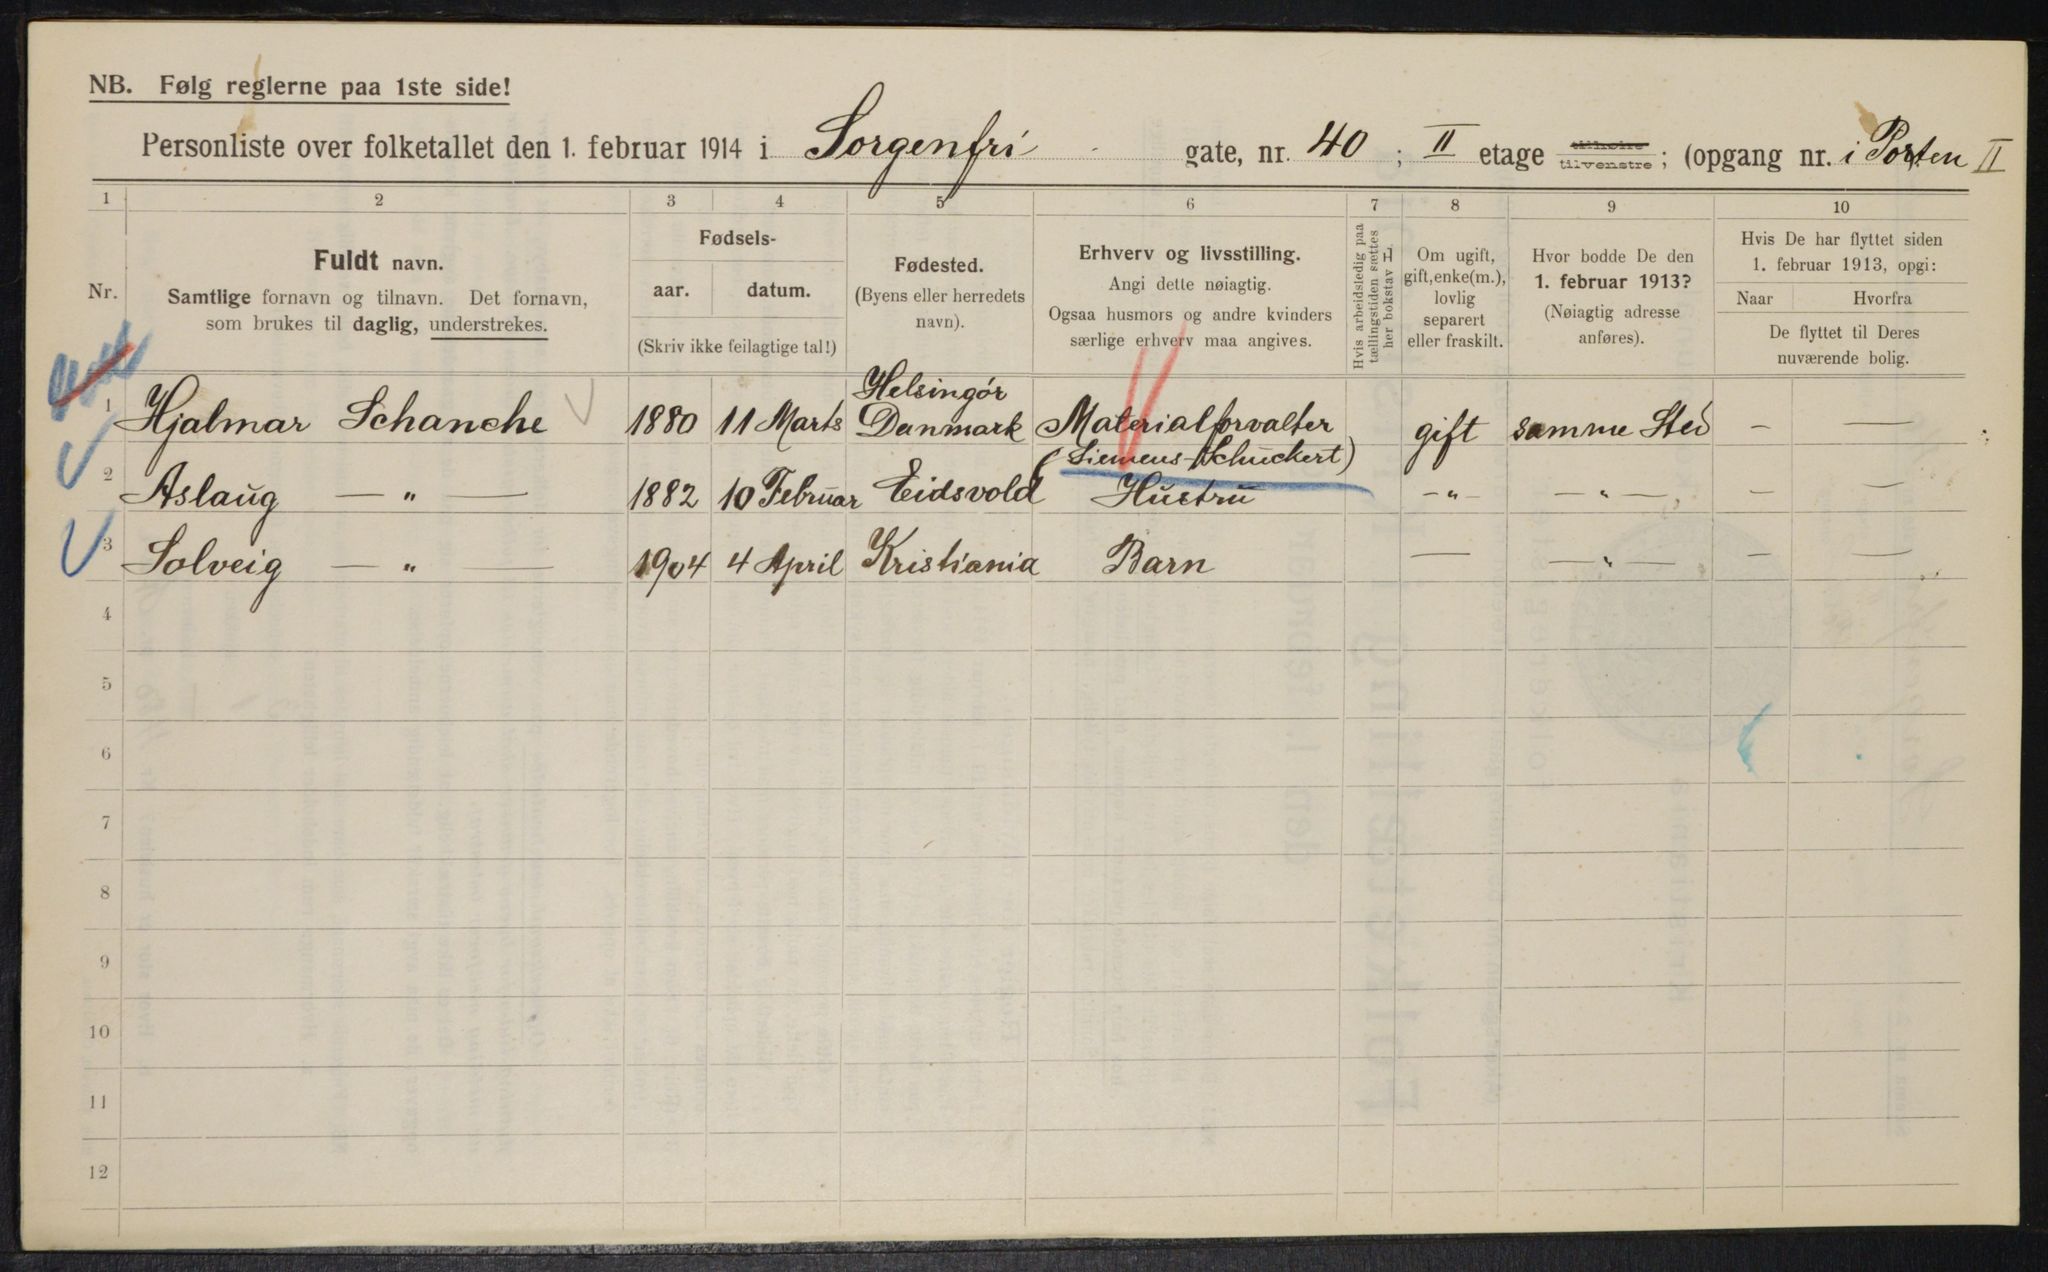 NB. Følg reglerne paa 1ste side!
Personliste over folketallet den 1. februar 1914 i Sorgenfri gate, nr. 40 ; II etage tilhøire tilvenstre ; (opgang nr. i Porten II
1 2 3 4 5 6 7 8 9 10
Nr.
Fuldt navn.
Samtlige fornavn og tilnavn. Det fornavn,
som brukes til daglig, understrekes.
Fødsels-
aar. datum.
(Skriv ikke feilagtige tal!)
Fødested.
(Byens eller herredets
navn).
Erhverv og livsstilling.
Angi dette nøiagtig.
Ogsaa husmors og andre kvinders
særlige erhverv maa angives.
Hvis arbeidsledig paa
tællingstiden sættes
her bokstav L.
Om ugift,
gift,enke(m.),
lovlig
separert
eller fraskilt.
Hvor bodde De den
1. februar 1913?
(Nøiagtig adresse
anføres).
Hvis De har flyttet siden
1. februar 1913, opgi:
Naar Hvorfra
De flyttet til Deres
nuværende bolig.
1 Hjalmar Schanche 1880 11 Marts Helsingör Danmark Materialforvalter gift samme Sted — —
(Siemens-Schuckert)
2 Aslaug — „ — 1882 10 Februar Eidsvold Hustru — „ — — „ — — —
3 Solveig — „ — 1904 4 April Kristiania Barn — — „ — — —
4
5
6
7
8
9
10
11
12